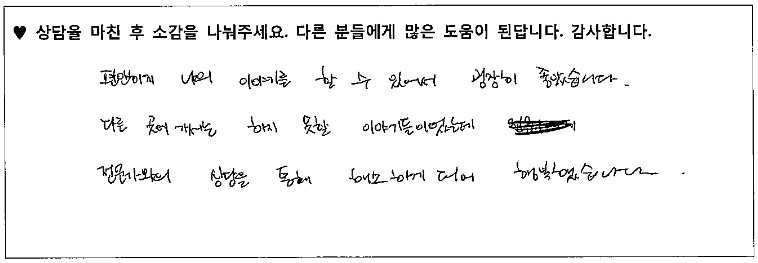 ♥ 상담을 마친 후 소감을 나눠주세요. 다른 분들에게 많은 도움이 된답니다. 감사합니다.
편안하게 나의 이야기를 할 수 있어서 굉장히 좋았습니다.
다른 곳에 가서는 하지 못할 이야기들이었는데
전문가와의 상담을 통해 해소하게 되어 행복했습니다.